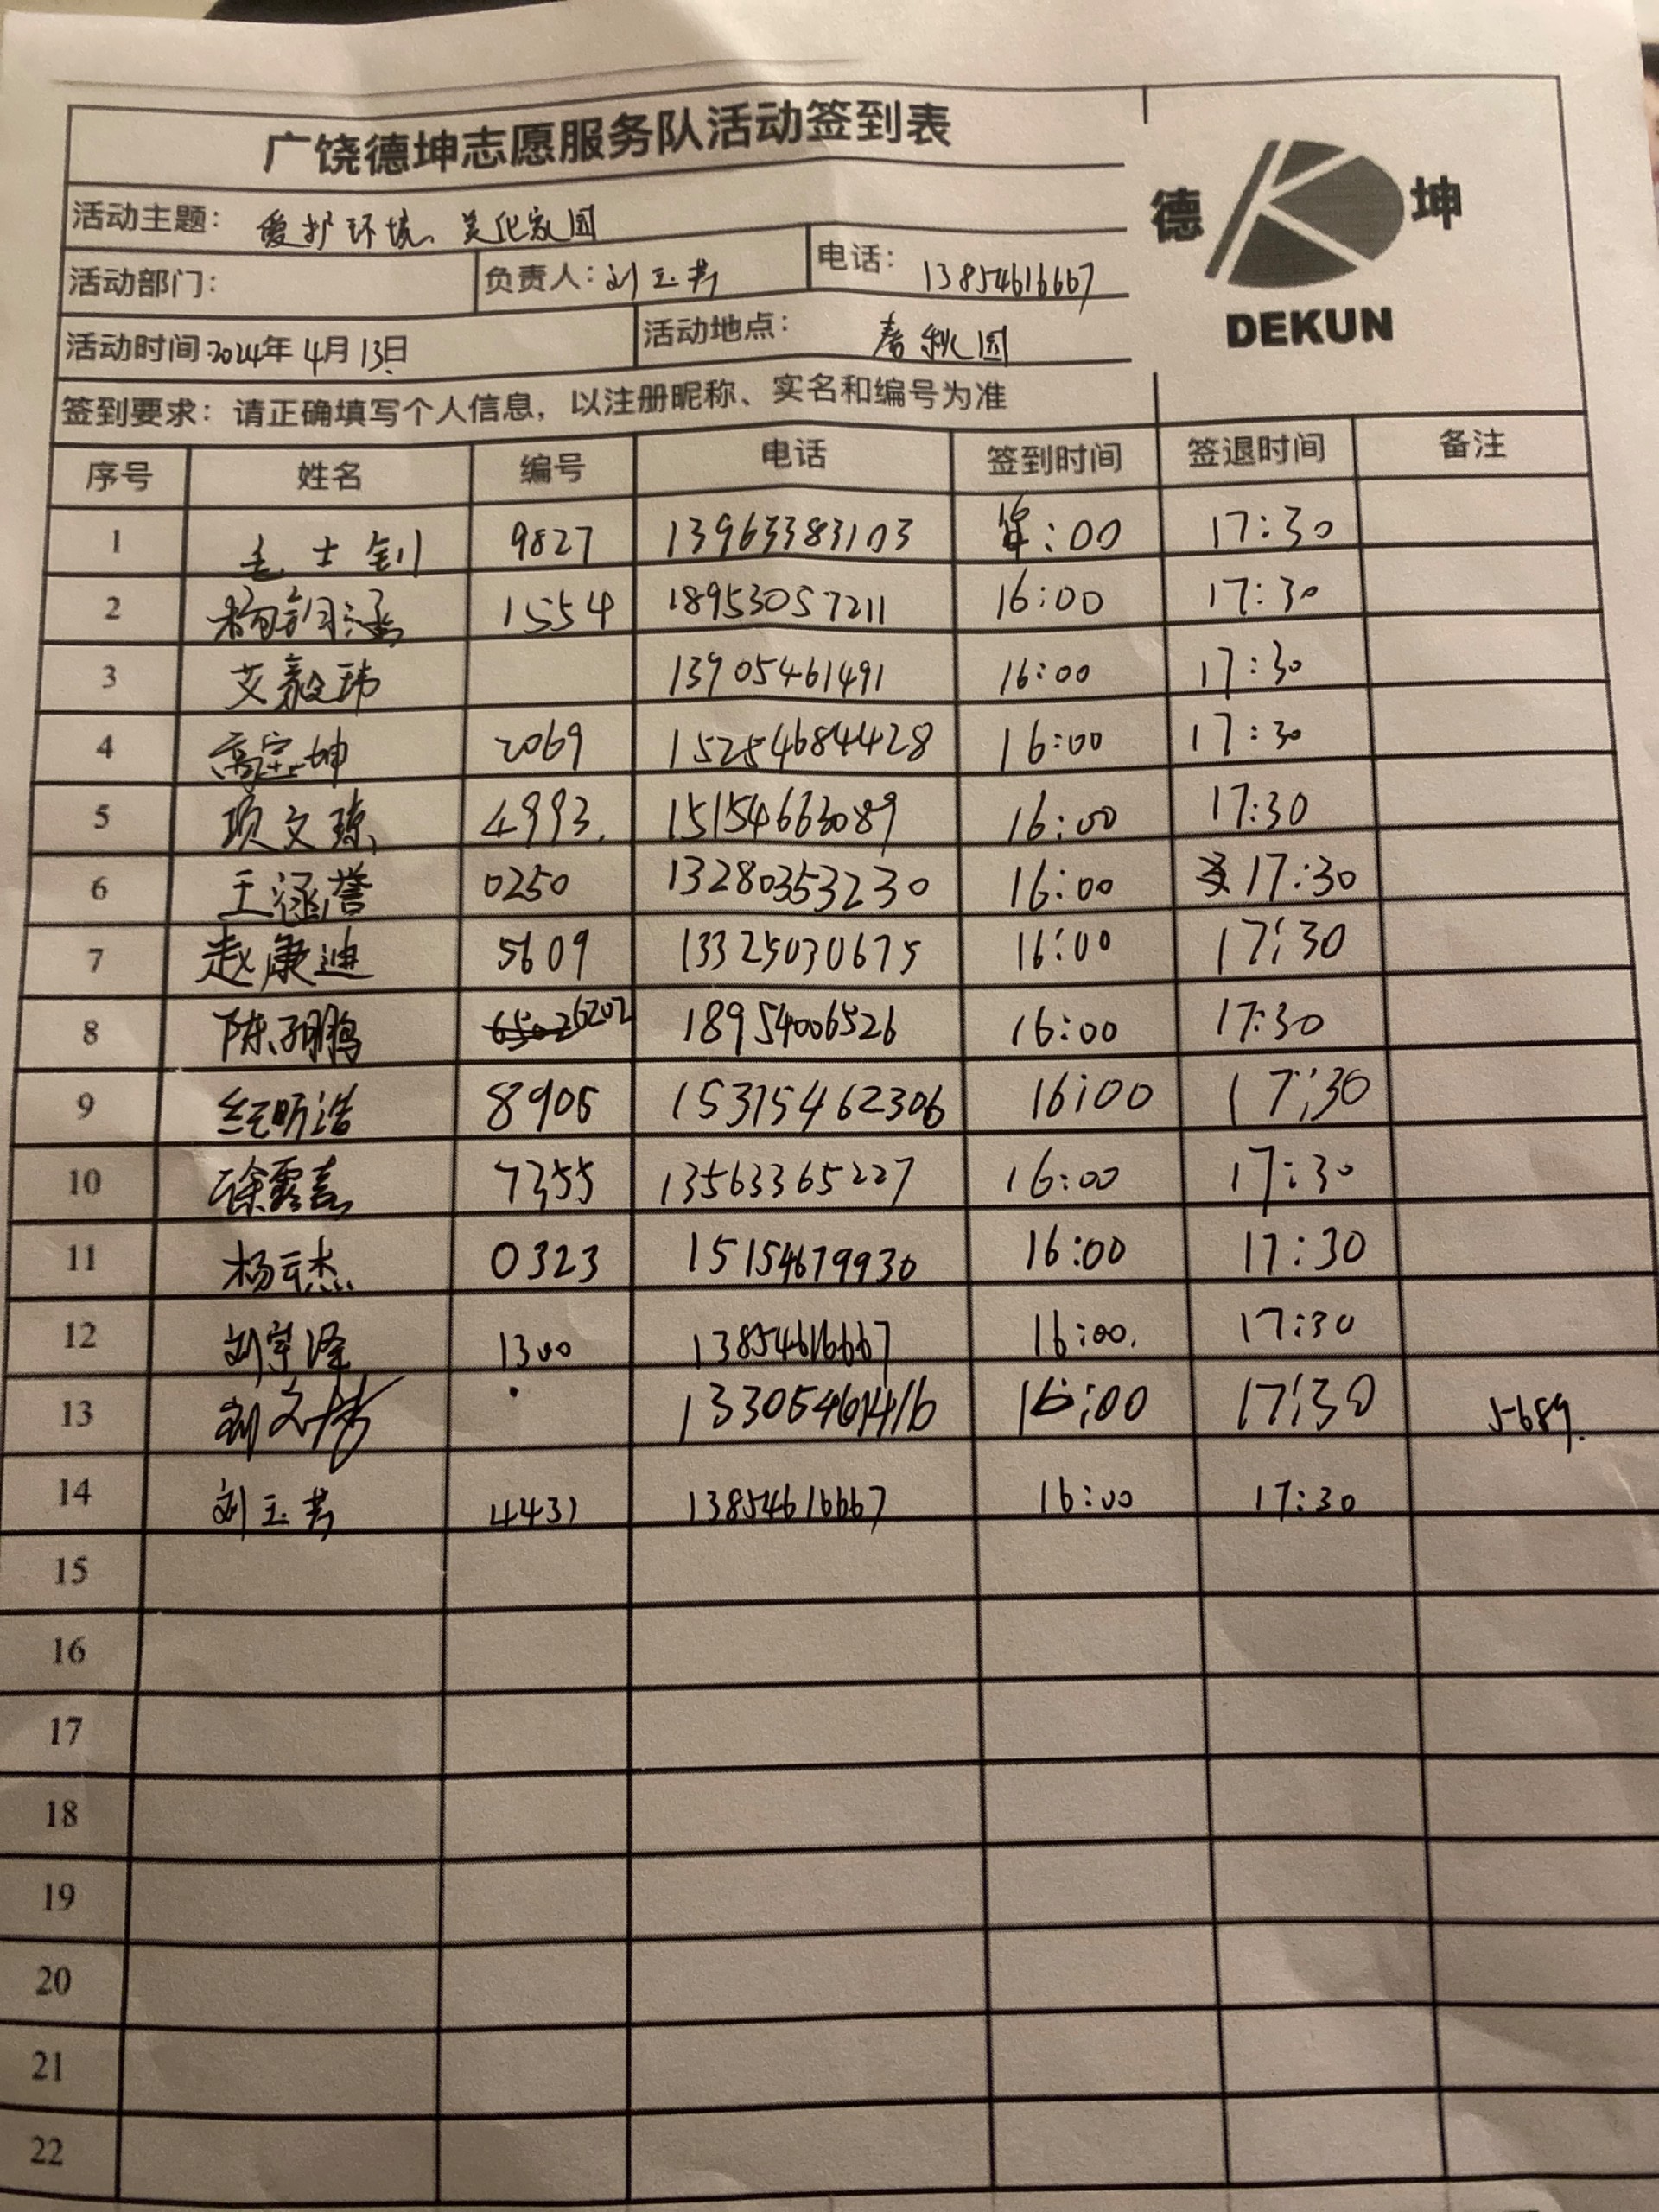 广饶德坤志愿服务队活动签到表
德 坤
DEKUN
活动主题: 爱护环境、美化家园
活动部门: 负责人: 刘玉芳 电话: 13854616667
活动时间: 2024年4月13日 活动地点: 春秋园
签到要求: 请正确填写个人信息, 以注册昵称、实名和编号为准
序号 姓名 编号 电话 签到时间 签退时间 备注
1 士钊 9827 13963383103 :00 17:30
2 1554 18953057211 16:00 17:30
3 艾毅玮 13905461491 16:00 17:30
4 2069 15254684428 16:00 17:30
5 项文琼 4993. 15154663089 16:00 17:30
6 王涵誉 0250 13280353230 16:00 17:30
7 赵康迪 5609 13325030675 16:00 17:30
8 6202 18954006526 16:00 17:30
9 8905 15315462306 16:00 17:30
10 7355 13563365227 16:00 17:30
11 杨云杰 0323 15154679930 16:00 17:30
12 刘宇泽 1300 13854616667 16:00. 17:30
13 16:00 17:30 5689.
14 刘玉芳 4431 13854616667 16:00 17:30
15
16
17
18
19
20
21
22